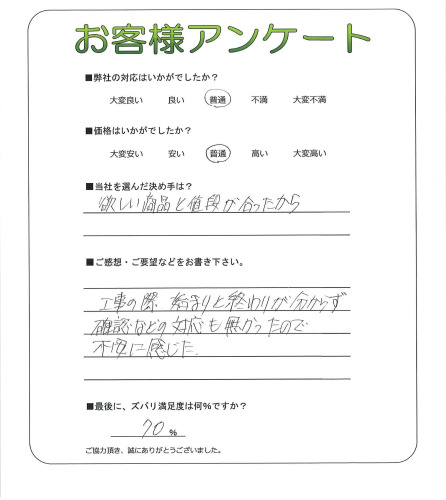 お客様アンケート
■弊社の対応はいかがでしたか？
大変良い 良い 普通 不満 大変不満
■価格はいかがでしたか？
大変安い 安い 普通 高い 大変高い
■当社を選んだ決め手は？
欲しい商品と値段が合ったから
■ご感想・ご要望などをお書き下さい。
工事の際 始まりと終わりが分からず
確認などの対応も無かったので
不安に感じた.
■最後に、ズバリ満足度は何％ですか？
70 %
ご協力頂き、誠にありがとうございました。